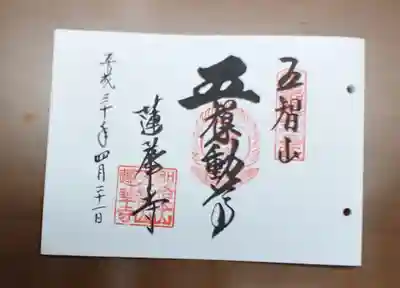 五智山
五動尊
蓮華寺
平成三十年四月二十一日